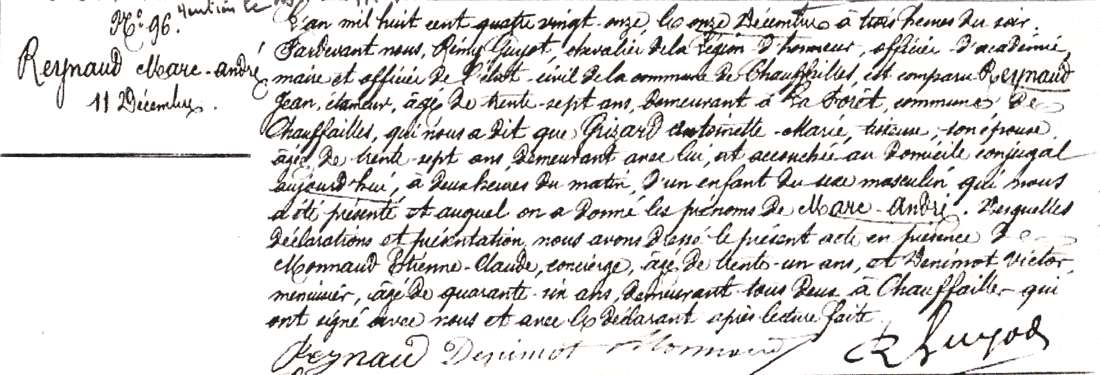 N.° 96.
Mention le
Reynaud Marc-André
11 Décembre.
L'an mil huit cent quatre vingt-onze le onze Décembre à trois heures du soir.
Pardevant nous, Rémy Guyot, chevalier de la Légion d'honneur, officier d'académie,
maire et officier de l'état-civil de la commune de Chauffailles, est comparu Reynaud
Jean, étameur, âgé de trente-sept ans, demeurant à La Forêt, commune de
Chauffailles, qui nous a dit que Grizard Antoinette-Marie, tisseuse, son épouse
âgée de trente-sept ans demeurant avec lui, est accouchée au domicile conjugal
aujourd'hui, à deux heures du matin, d'un enfant du sexe masculin qui nous
a été présenté et auquel on a donné les prénoms de Marc-André. Desquelles
déclarations et présentation nous avons dressé le présent acte en présence de
Monnaud Etienne-Claude, concierge, âgé de trente-un ans, et Denimot Victor,
menuisier, âgé de quarante-six ans, demeurant tous deux à Chauffailles qui
ont signé avec nous et avec le déclarant après lecture faite.
Reynaud Denimot Monnaud R Guyot